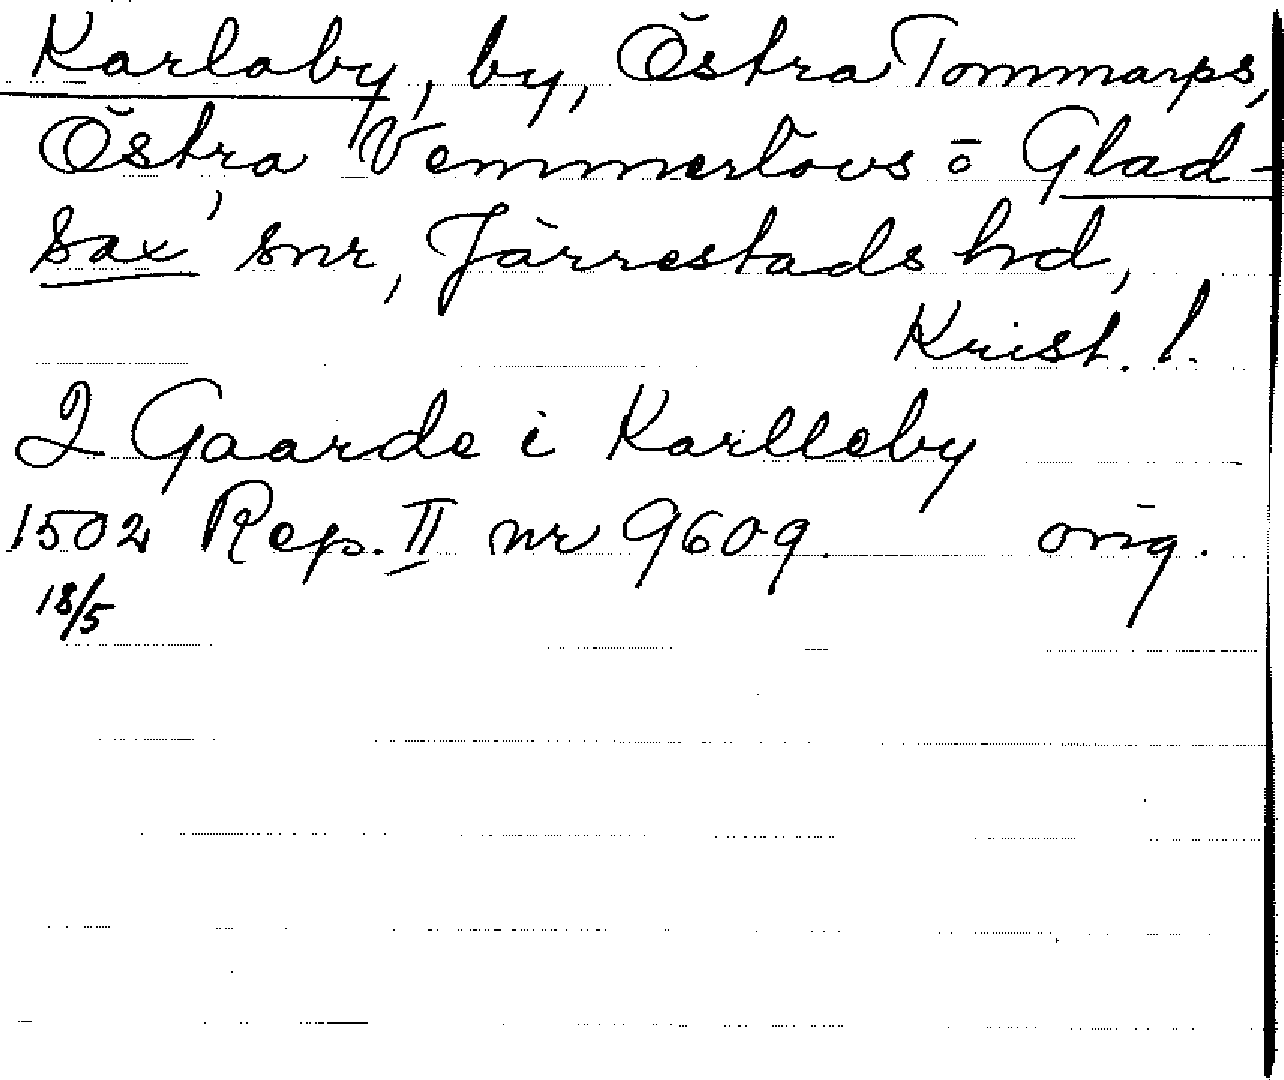 Karlaby, by, Östra Tommarps,
Östra Vemmerlövs o Glad-
sax snr, Järrestads hd,
Krist. l.
2 Gaarde i Karlleby
1502 Rep. II nr 9609. orig.
18/5